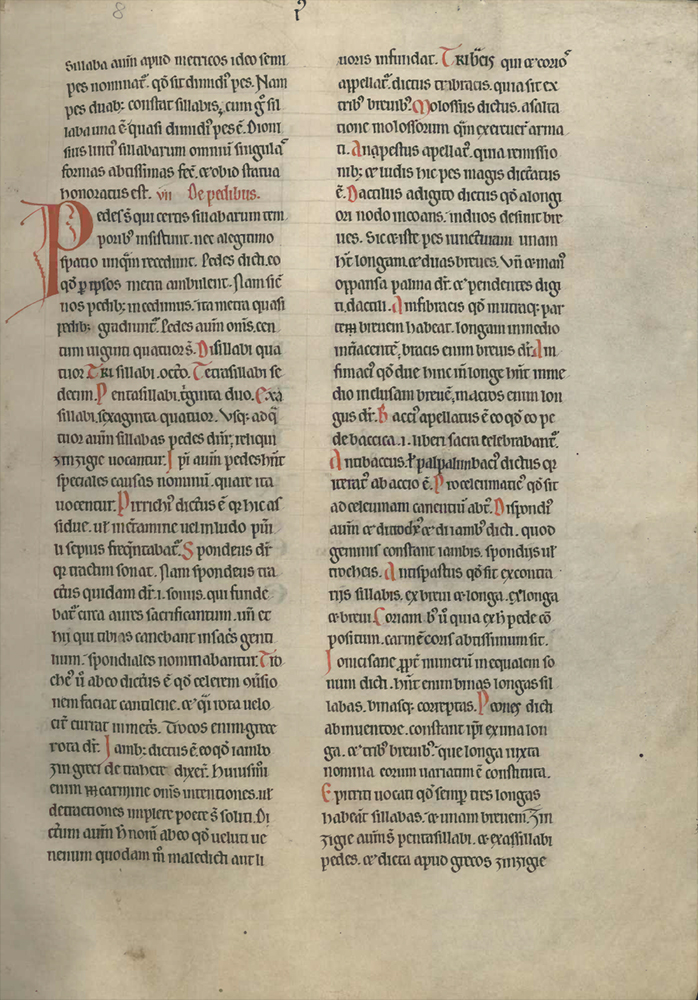 8
sillaba autẽ apud metricos ideo semi
pes nominat᷑. qđ sit dimidiꝰ pes. Nam
pes duabꝫ constat sillabis, cum g̃ sil
laba una ẽ quasi dimidiꝰ pes ẽ. Dioni
sius sillabarum omniũ singulas
formas abtissimas fec̃. et ob id statua
honoratus est. vii De pedibus.
Pedes s̃ qui certis sillabarum tem
poribꝰ insistunt. nec a legitimo
spatio unq̃m recedunt. Pedes dicti eo
qđ ꝑ ip̃sos metra ambulent. Nam sic̃
nos pedibꝫ incedimus. ita metra quasi
pedibꝫ gradiunt᷑. Pedes autẽ om̃s. cen
tum uiginti quatuor s̃. Disillabi qua
tuor. Trisillabi. octo. Tetrasillabi se
decim. Pentasillabi. t̃ginta duo. Exa
sillabi. sexaginta quatuor. Vsqꝫ ad q̃
tuor autẽ sillabas pedes dn̄r. reliqui
zinzigie uocantur. Ip̃i autẽ pedes hñt
speciales causas nominũ. quare ita
uocentur. Pirrichiꝰ dictus ẽ qr hic as
sidue. ul̃ in c̃tamine uel in ludo pũi
li sepius freq̃ntabat᷑. Spondeus dr̃
qr tractim sonat. Nam spondeus tra
ctus quidam dr̃. i. sonus. qui funde
bat᷑ circa aures sacrificantium. uñ et
hij qui tibias canebant in sac̃s genti
lium. spondiales nominabantur. Tro
cheꝰ ũ ab eo dictus ẽ qđ celerem ꝯuersio
nem faciat cantilene. et q̃i rota uelo
cit̃ currat in met̃s. Trocos enim grece
rota dr̃. Iambꝰ dictus ẽ eo qđ iambo
zin greci detrahere dixer̃. Huiusm̃i
enim carmine om̃s intentiones. ul̃
detractiones implere poete s̃ soliti. Di
ctum autẽ h nom̃ ab eo qđ ueluti ue
nenum quodam m̃ maledicti aut li
uoris infundat. Tribꝰcis qui et corioꝰ
appellat᷑. dictus tribracis. quia sit ex
tribꝰ breuibꝰ. Molossus dictus. a salta
tione molossorum q̃m exercuer̃ arma
ti. Anapestus apellat᷑. quia remissio
nibꝫ et ludis hic pes magis dictatus
ẽ. Dactilus a digito dictus qđ a longi
ori nodo incoans. in duos desinit bre
ues. Sic et iste pes iunctam unam
h̃t longam. et duas breues. Vñ et manꝰ
oppansa palma dr̃. et pendentes digi
ti. dactili. Amfibracis qđ in utraqꝫ par
te breuem habeat. longam in medio
int̃iacentẽ. bracis enim breuis dr̃. Am
fimacꝰ qđ due hinc in longe hñt in me
dio inclusam breuẽ. macros enim lon
gus dr̃. Bacciꝰ apellatus ẽ eo qđ eo pe
de baccica. i. liberi sacra celebrabant᷑.
Antibaccus. ł palpalimbaciꝰ dictus qr
iterat᷑ ab accio ẽ. Proceleumaticꝰ qđ sit
ad celeumam canentiũ abtꝰ. Dispondiꝰ
autẽ et ditrocheꝰ et diiambꝰ dicti. quod
geminis constant iambis. spondijs ul̃
trocheis. Antispastus qđ sit ex contra
rijs sillabis. ex breui et longa. ex longa
et breui. Coriam bꝰ ũ quia ex h pede cõ
positum. carmẽ coriꝰ abtissimum sit.
Ionici sane ꝓpt̃ numerũ inequalem so
num dicti. hñt enim binas longas sil
labas. binasqꝫ. correptas. Pones dicti
ab inuentore. constant ip̃i ex una lon
ga. et tribꝰ breuibꝰ. que longa iuxta
nomina eorum uariatim ẽ constituta.
Epitriti uocati qđ semp̃ tres longas
habeãt sillabas. et unam breuem. Zin
zigie autẽ s̃ pentasillabi. et exasillabi
pedes. et dicta apud grecos zinzigie